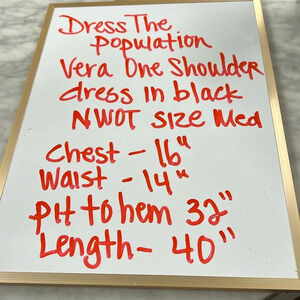 Dress The
population
Vera One Shoulder
dress in black
NWOT size Med
Chest - 16"
Waist - 14"
pit to hem 32"
Length - 40"